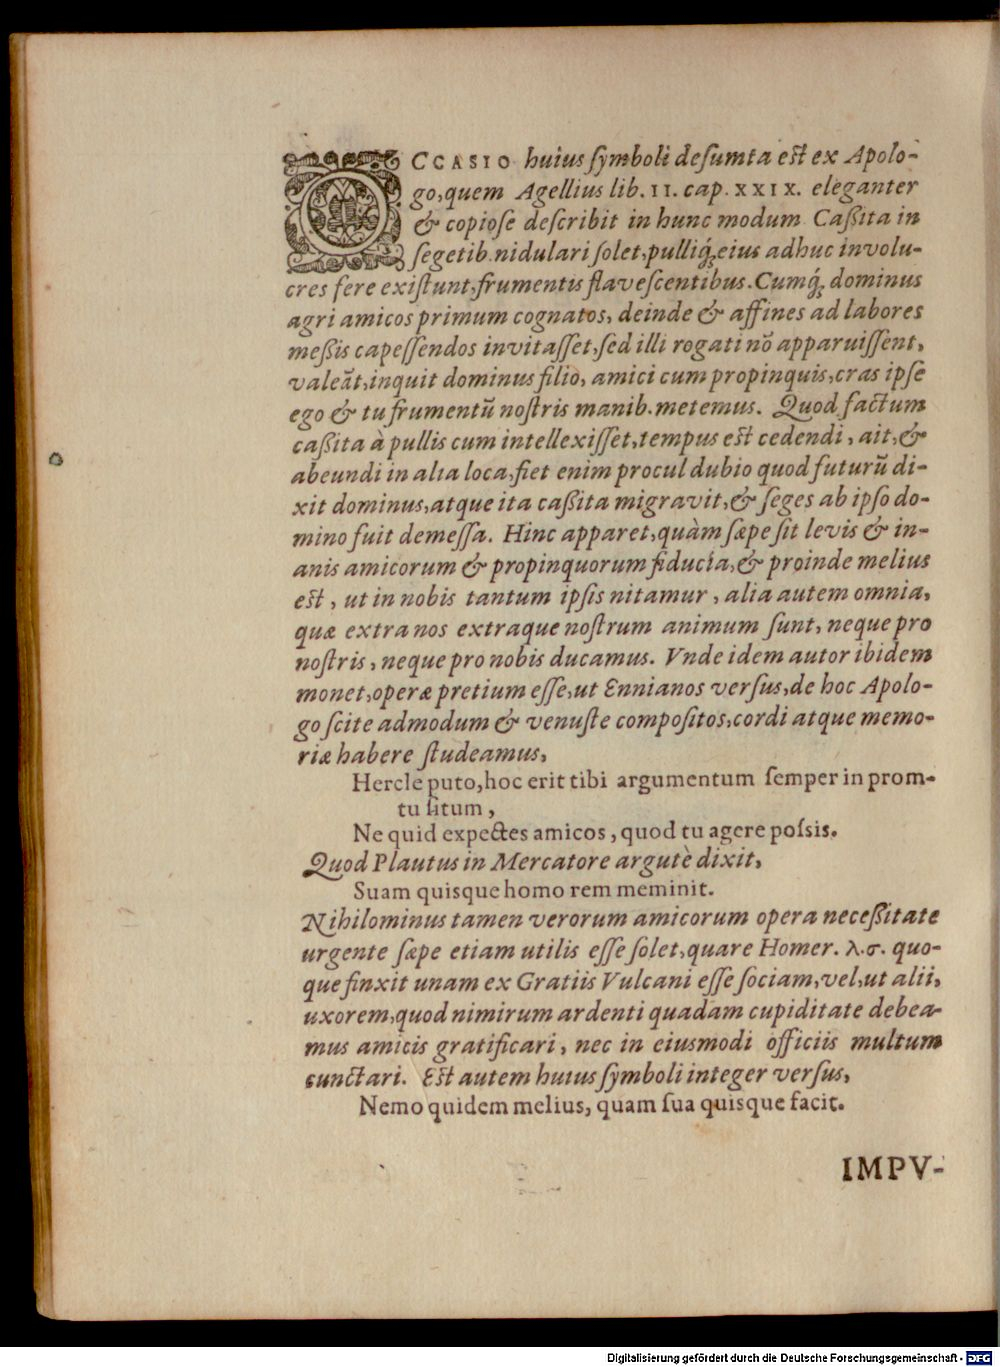 OCCASIO huius ſymboli deſumta eſt ex Apolo-
go, quem Agellius lib. II. cap. XXIX. eleganter
& copioſe deſcribit in hunc modum Caßita in
ſegetib. nidulari ſolet, pulliq́; eius adhuc involu-
cres fere exiſtunt, frumentis flaveſcentibus. Cumq́; dominus
agri amicos primum cognatos, deinde & affines ad labores
meßis capeſſendos invitaſſet, ſed illi rogati nō apparuiſſent,
valeāt, inquit dominus filio, amici cum propinquis, cras ipſe
ego & tu frumentū noſtris manib. metemus. Quod factum
caßita à pullis cum intellexiſſet, tempus eſt cedendi, ait, &
abeundi in alia loca, fiet enim procul dubio quod futurū di-
xit dominus, atque ita caßita migravit, & ſeges ab ipſo do-
mino fuit demeſſa. Hinc apparet, quàm ſæpe ſit levis & in-
anis amicorum & propinquorum fiducia, & proinde melius
eſt, ut in nobis tantum ipſis nitamur, alia autem omnia,
quæ extra nos extraque noſtrum animum ſunt, neque pro
noſtris, neque pro nobis ducamus. Vnde idem autor ibidem
monet, operæ pretium eſſe, ut Ennianos verſus, de hoc Apolo-
go ſcite admodum & venuſte compoſitos, cordi atque memo-
riæ habere ſtudeamus,
Hercle puto, hoc erit tibi argumentum ſemper in prom-
tu ſitum,
Ne quid expectes amicos, quod tu agere poſsis.
Quod Plautus in Mercatore argutè dixit,
Suam quisque homo rem meminit.
Nihilominus tamen verorum amicorum opera neceßitate
urgente ſæpe etiam utilis eſſe ſolet, quare Homer. λ.σ. quo-
que finxit unam ex Gratiis Vulcani eſſe ſociam, vel, ut alii,
uxorem, quod nimirum ardenti quadam cupiditate debea-
mus amicis gratificari, nec in eiusmodi officiis multum
cunctari. Eſt autem huius ſymboli integer verſus,
Nemo quidem melius, quam ſua quisque facit.
IMPV-
Digitalisierung gefördert durch die Deutsche Forschungsgemeinschaft - DFG